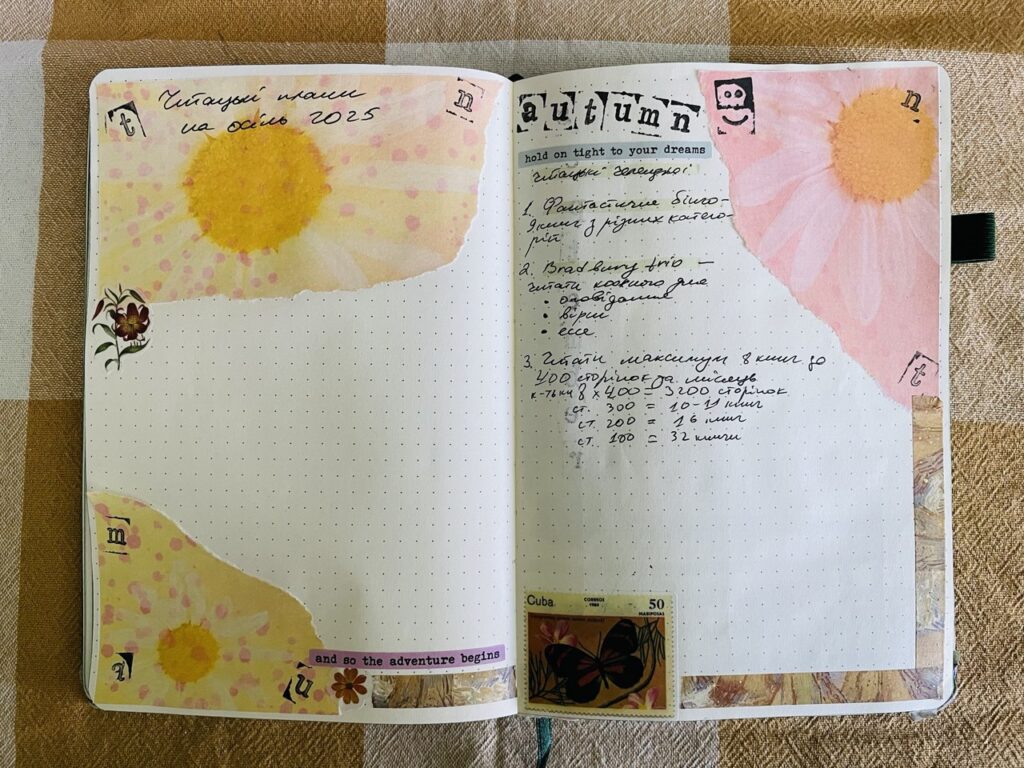 Читацькі плани
на осінь 2025
t
n
m
i
u
and so the adventure begins
autumn
n
t
hold on tight to your dreams
Читацькі челенджі
1. Фантастичне бінго-
9 книг з різних катего-
рій
2. Bradbury trio –
читати кожного дня
• оповідання
• вірш
• есе
3. Читати максимум 8 книг до
400 сторінок за місяць
к-ть кн 8 x 400 = 3200 сторінок
ст. 300 = 10-11 книг
ст. 200 = 16 книг
ст. 100 = 32 книги
Cuba
CORREOS
50
MARIPOSAS